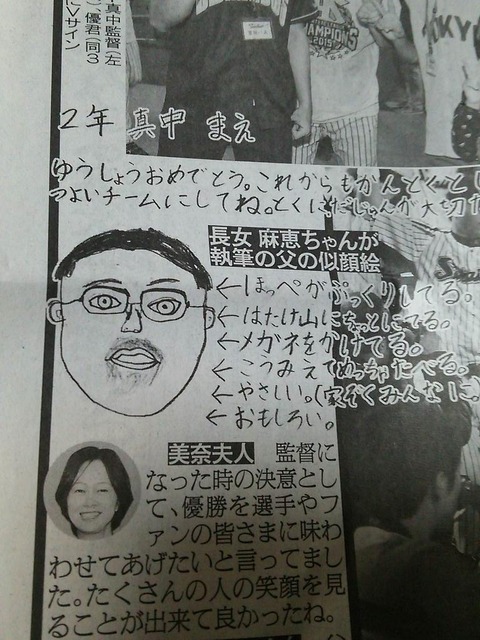 真中監督(左
優君(同3
Vサイン
CHAMPIONS
2015
KY
2年 真中 まえ
ゆうしょうおめでとう。これからもかんとくとし
つよいチームにしてね。とくにだじゅんが大切だ
長女 麻恵ちゃんが
執筆の父の似顔絵
←ほっぺがぷっくりしてる。
←はたけ山にちょっとにてる。
←メガネをかけてる。
←こうみえてめっちゃたべる。
←やさしい。(家ぞくみんなに)
←おもしろい。
美奈夫人 監督に
なった時の決意とし
て、優勝を選手やフ
ァンの皆さまに味わ
わせてあげたいと言ってまし
た。たくさんの人の笑顔を見
ることが出来て良かったね。